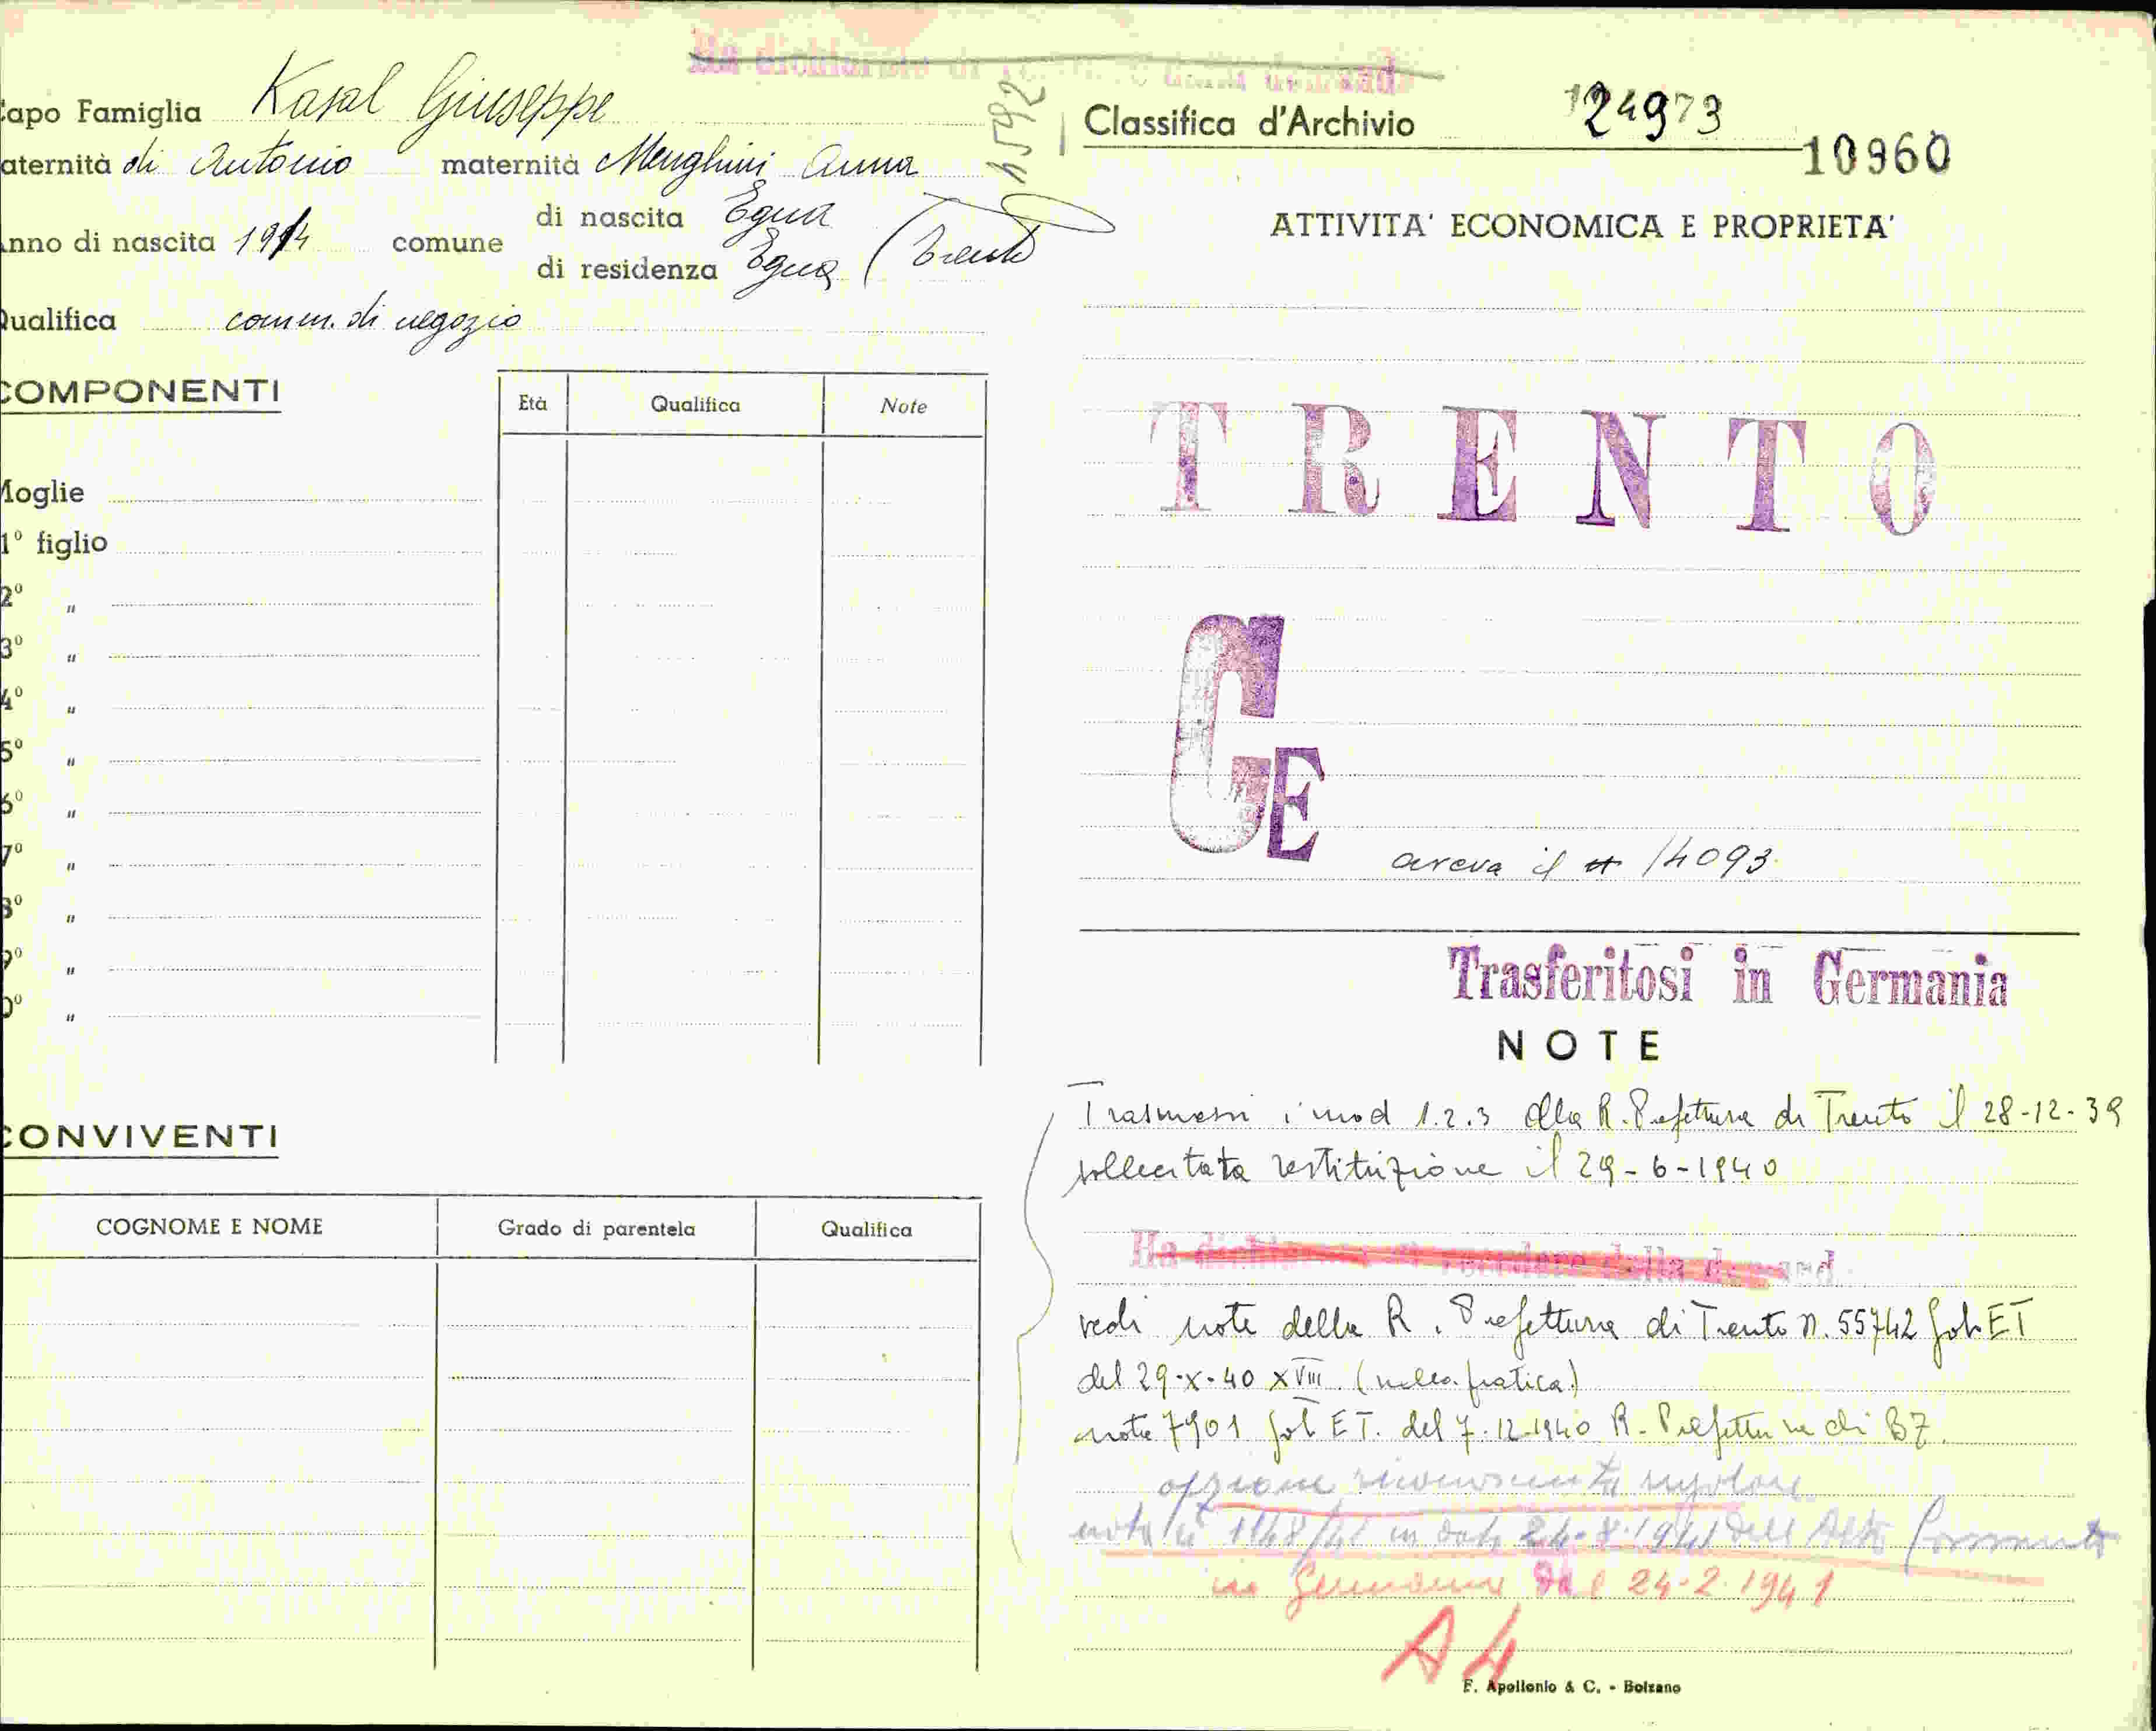 Capo Famiglia Kasal Giuseppe
aternità di Antonio maternità Menghini Anna
nno di nascita 1914 comune di nascita Egna
di residenza Egna (Trento
Qualifica comm. di negozio
COMPONENTI
Età Qualifica Note
Moglie
1° figlio
2° "
3° "
4° "
5° "
6° "
7° "
8° "
9° "
0° "
CONVIVENTI
COGNOME E NOME Grado di parentela Qualifica
Ha dichiarato di
Classifica d'Archivio 124973
10960
ATTIVITA' ECONOMICA E PROPRIETA'
TRENTO
GE
aveva il 14093
Trasferitosi in Germania
NOTE
Trasmessi i mod 1.2.3 alla R. Prefettura di Trento il 28-12-39
sollecitata restituzione il 29-6-1940
Ha dichiarato di recedere dalla domand
vedi note della R. Prefettura di Trento n. 55742 Gab ET
del 29-X-40 XVIII (nella pratica)
note 7901 Gab ET. del 7-12-1940 R. Prefettura di BZ.
opzione riconosciuta regolare
nota n° 1148/41 in data 24-8-1941 dell'Alto
in Germania dal 24-2-1941
A4
F. Apollonio & C. - Bolzano